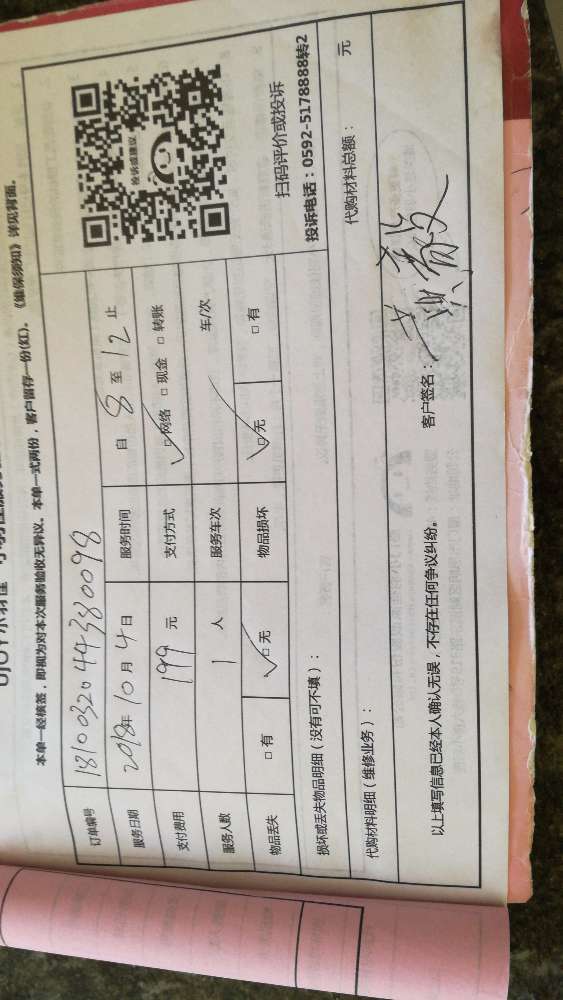 本单一经核签，即视为对本次服务验收无异议。本单一式两份，客户留存一份(红)。《维保须知》详见背面。
订单编号 1810032044380098
服务日期 2018年10月4日 服务时间 自 8 至 12 止
支付费用 199 元 支付方式 ☑网络 □现金 □转账
服务人数 1 人 服务车次 / 车/次
物品丢失 □有 ☑无 物品损坏 ☑无 □有
投诉或建议
扫码评价或投诉
投诉电话：0592-5178888转2
损坏或丢失物品明细（没有可不填）：
代购材料明细（维修业务）： 代购材料总额： 元
以上填写信息已经本人确认无误，不存在任何争议纠纷。 客户签名：